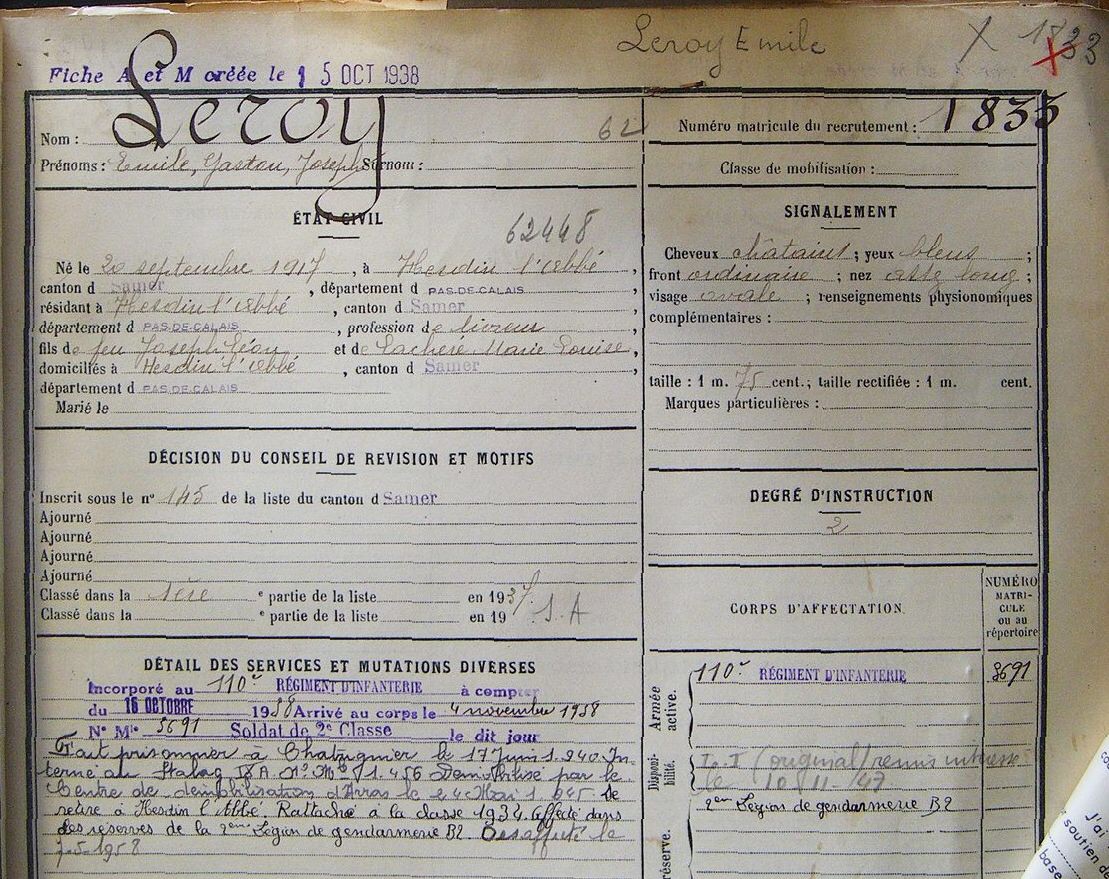 Leroy Emile
X 1833
Fiche A et M créée le 15 OCT 1938
Nom : Leroy
62
Prénoms : Emile, Gaston, Joseph Surnom :
ÉTAT CIVIL
62448
Né le 20 septembre 1917, à Hesdin l'Abbé,
canton d Samer, département d PAS-DE-CALAIS
résidant à Hesdin l'Abbé, canton d Samer,
département d PAS-DE-CALAIS, profession de livreur
fils de feu Joseph Léon et de Lachere Marie Louise,
domiciliés à Hesdin l'Abbé, canton d Samer,
département d PAS-DE-CALAIS
Marié le
DÉCISION DU CONSEIL DE REVISION ET MOTIFS
Inscrit sous le n° 145 de la liste du canton d Samer
Ajourné
Ajourné
Ajourné
Ajourné
Classé dans la 1ère e partie de la liste en 1937
Classé dans la e partie de la liste en 19 S.A
DÉTAIL DES SERVICES ET MUTATIONS DIVERSES
Incorporé au 110e RÉGIMENT D'INFANTERIE à compter
du 16 OCTOBRE 1938 Arrivé au corps le 4 novembre 1938
N° Mle 3691 Soldat de 2e Classe le dit jour
Fait prisonnier à le 17 Juin 1.940. In-
terné au Stalag N° Mle Démobilisé par le
Centre de démobilisation d'Arras le 24 Mai 1.945. Se
retire à Hesdin l'Abbé. Rattaché à la classe 1934. Affecté dans
les réserves de la 2ème Légion de gendarmerie B2. Désaffecté le
7-5-1958
Numéro matricule du recrutement : 1833
Classe de mobilisation :
SIGNALEMENT
Cheveux châtains ; yeux bleus ;
front ordinaire ; nez assz long ;
visage ovale ; renseignements physionomiques
complémentaires :
taille : 1 m. 75 cent.; taille rectifiée : 1 m. cent.
Marques particulières :
DEGRÉ D'INSTRUCTION
2
CORPS D'AFFECTATION.
NUMÉRO
MATRI-
CULE
ou au
répertoire
Armée
active.
110e RÉGIMENT D'INFANTERIE 3691
Disponi-
bilité.
(original) remis
le 10-11-47
2ème Légion de gendarmerie B2
réserve.
J'ai
soutien de
base